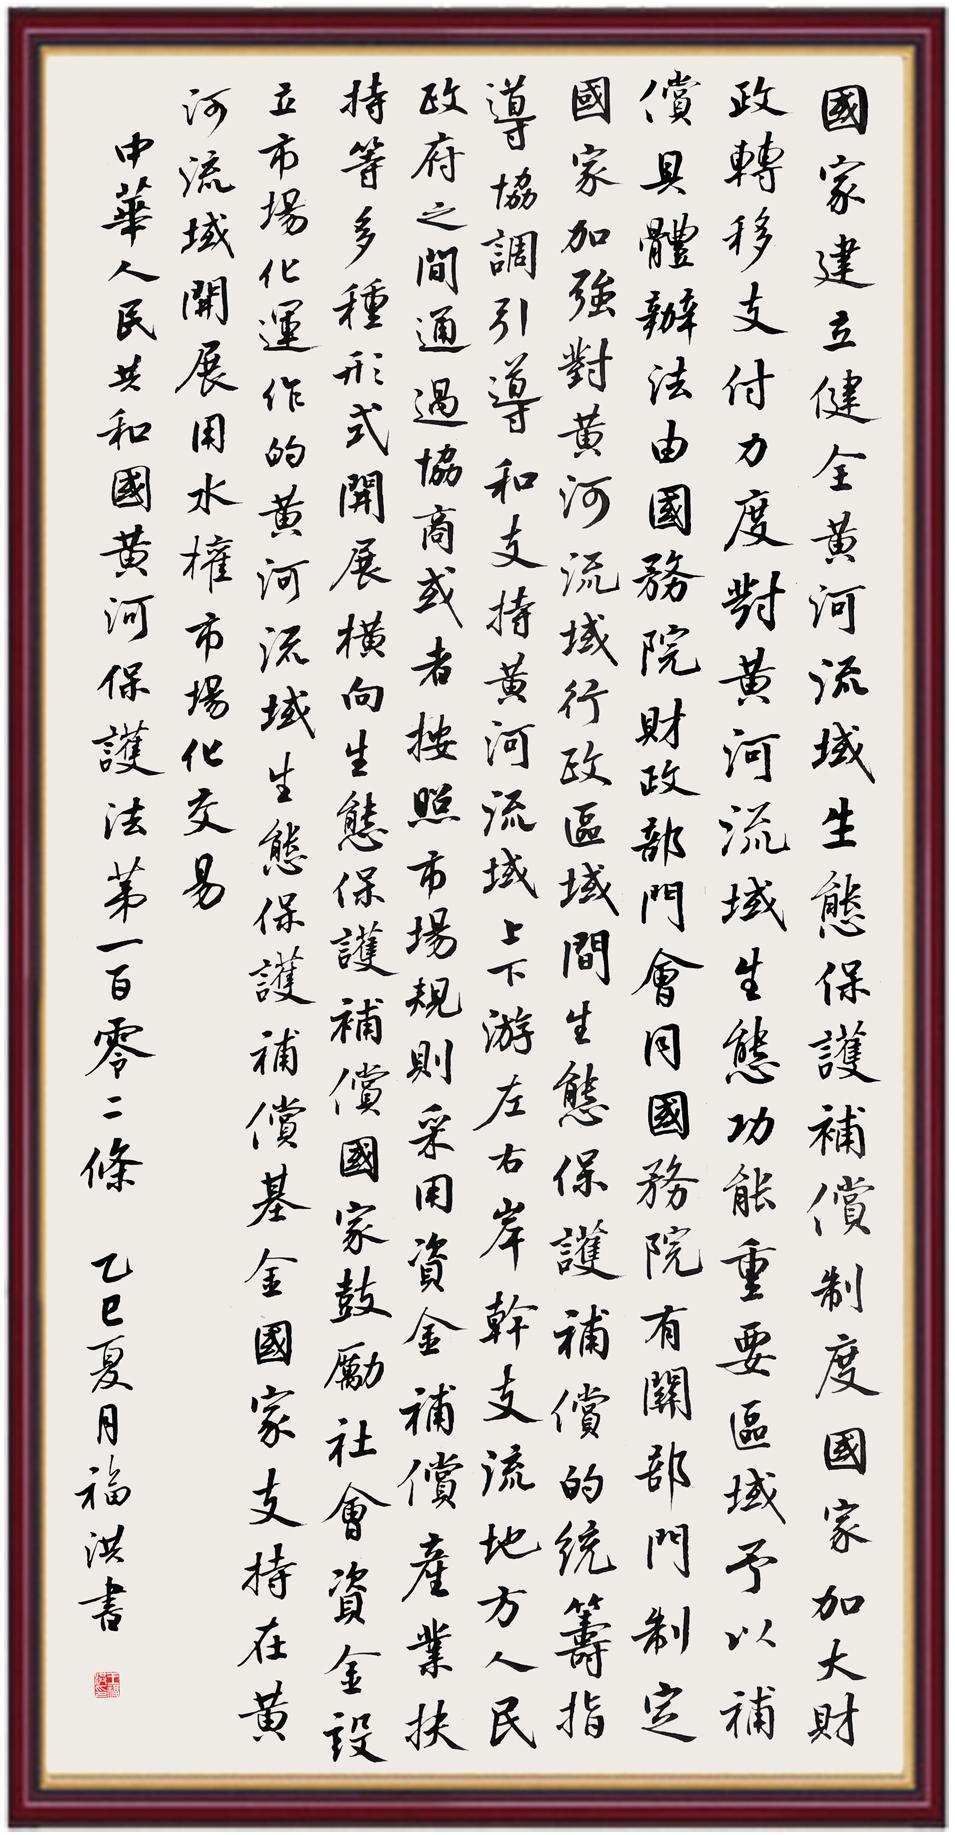 國家建立健全黃河流域生態保護補償制度國家加大財
政轉移支付力度對黃河流域生態功能重要區域予以補
償具體辦法由國務院財政部門會同國務院有關部門制定
國家加強對黃河流域行政區域間生態保護補償的統籌指
導協調引導和支持黃河流域上下游左右岸幹支流地方人民
政府之間通過協商或者按照市場規則采用資金補償產業扶
持等多種形式開展橫向生態保護補償國家鼓勵社會資金設
立市場化運作的黃河流域生態保護補償基金國家支持在黃
河流域開展用水權市場化交易
中華人民共和國黃河保護法第一百零二條 乙巳夏月福洪書